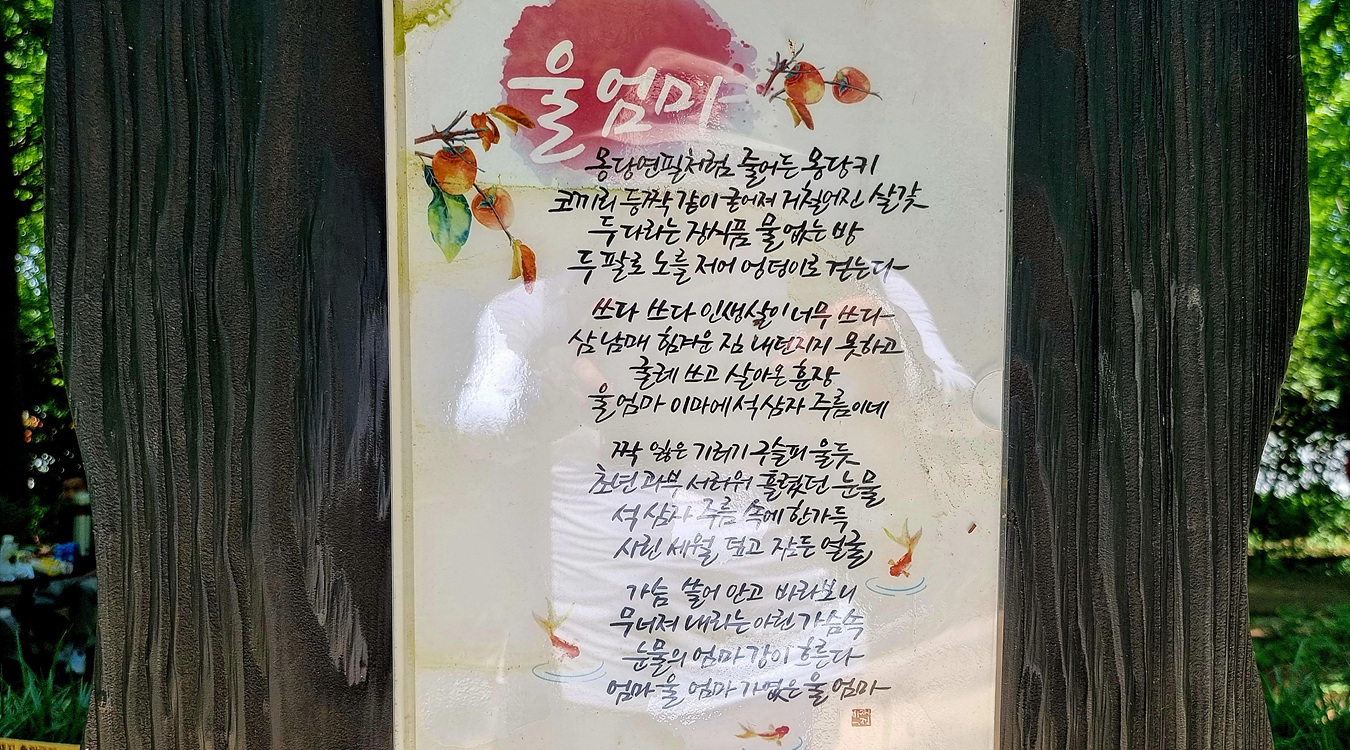 울엄마
몽당연필처럼 줄어든 몽당키
코끼리 등짝 같이 굳어져 거칠어진 살갗
두 다리는 장식품 물 없는 방
두 팔로 노를 저어 엉덩이로 걷는다
쓰다 쓰다 인생살이 너무 쓰다
삼 남매 힘겨운 짐 내던지지 못하고
굴레 쓰고 살아온 훈장
울 엄마 이마에 석 삼자 주름이네
짝 잃은 기러기 구슬피 울듯
초년 과부 서러워 흘렸던 눈물
석 삼자 주름 속에 한가득
시린 세월 덮고 잠든 얼굴
가슴 쓸어 안고 바라보니
무너져 내리는 아린 가슴속
눈물의 엄마강이 흐른다
엄마 울 엄마 가엾은 울 엄마